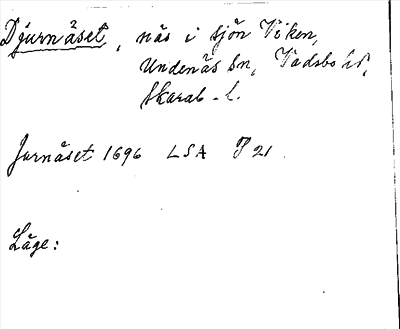 Djurnäset, näs i sjön Viken,
Undenäs sn, Vadsbo hd,
Skarab. l.
Jurnäset 1696 LSA P 21.
Läge: